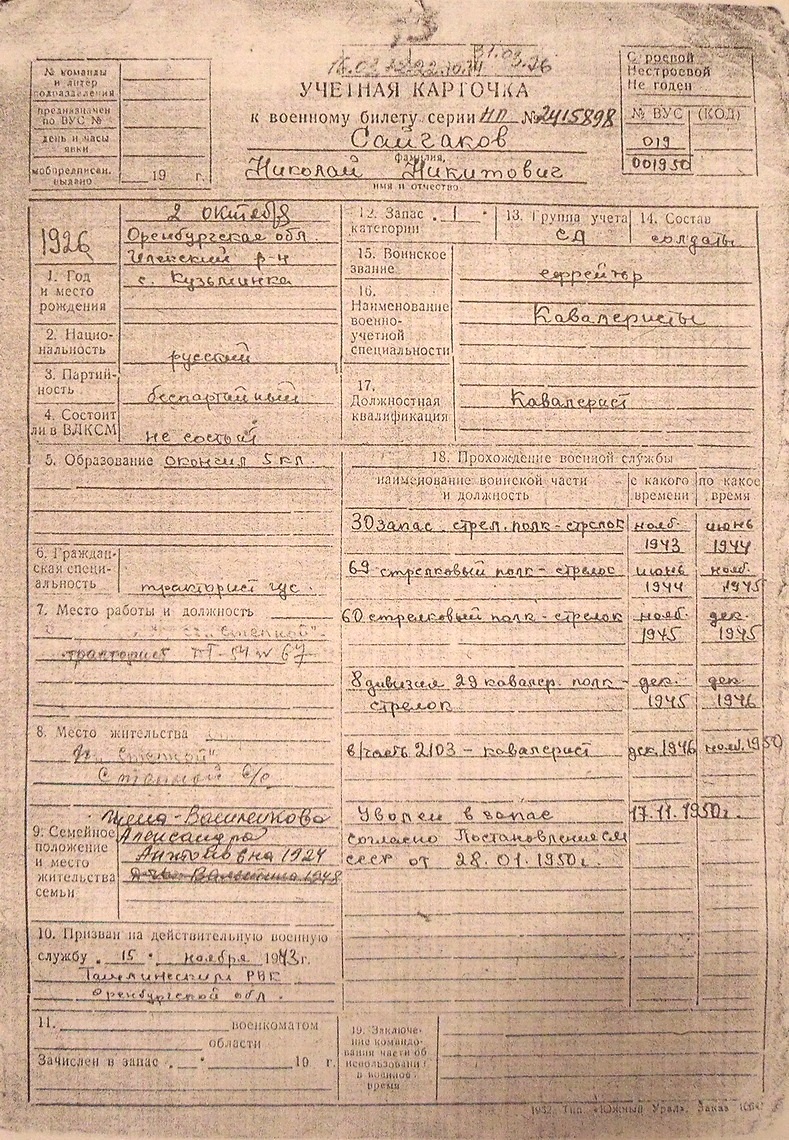 31.03.76
УЧЕТНАЯ КАРТОЧКА
к военному билету серии НП № 2415898
Сайгаков
фамилия,
Николай Никитович
имя и отчество
№ команды
и литер
подразделения
предназначен
по ВУС №
день и часы
явки
мобпредписан.
выдано
19 г.
Строевой
Нестроевой
Не годен
№ ВУС (КОД)
019
001950
1926
2 октября
Оренбургская обл.
Илекский р-н
с. Кузьминка
1. Год
и место
рождения
2. Нацио-
нальность
русский
3. Партий-
ность
беспартийный
4. Состоит
ли в ВЛКСМ
не состоит
5. Образование окончил 5 кл.
6. Граждан-
ская специ-
альность
тракторист гус.
7. Место работы и должность
"Степной"
тракторист ДТ-54 67
8. Место жительства
"Степной"
Степной с/с
9. Семейное
положение
и место
жительства
семьи
жена - Василенкова
Александра
Антоновна 1924
дочь Валентина 1948
10. Призван на действительную военную
службу " 15 " ноября 1943 г.
Ташлинским РВК
Оренбургской обл.
11. военкоматом
области
Зачислен в запас " " 19 г.
12. Запас
категории
1
13. Группа учета
СА
14. Состав
солдаты
15. Воинское
звание
ефрейтор
16.
Наименование
военно-
учетной
специальности
Кавалеристы
17.
Должностная
квалификация
Кавалерист
18. Прохождение военной службы
наименование воинской части
и должность
с какого
времени
по какое
время
30 запас. стрел. полк - стрелок нояб. июнь
1943 1944
69 стрелковый полк - стрелок июнь нояб.
1944 1945
60 стрелковый полк - стрелок нояб. дек.
1945 1945
8 дивизия 29 кавалер. полк - дек. дек.
стрелок 1945 1946
в/часть 2103 - кавалерист дек. 1946 нояб. 1950
Уволен в запас 17.11.1950г.
согласно Постановления см
ссср от 28.01.1950г.
19. Заключе-
ние командо-
вания части об
использовании
в военное
время
1952. Тип. «Южный Урал». Заказ